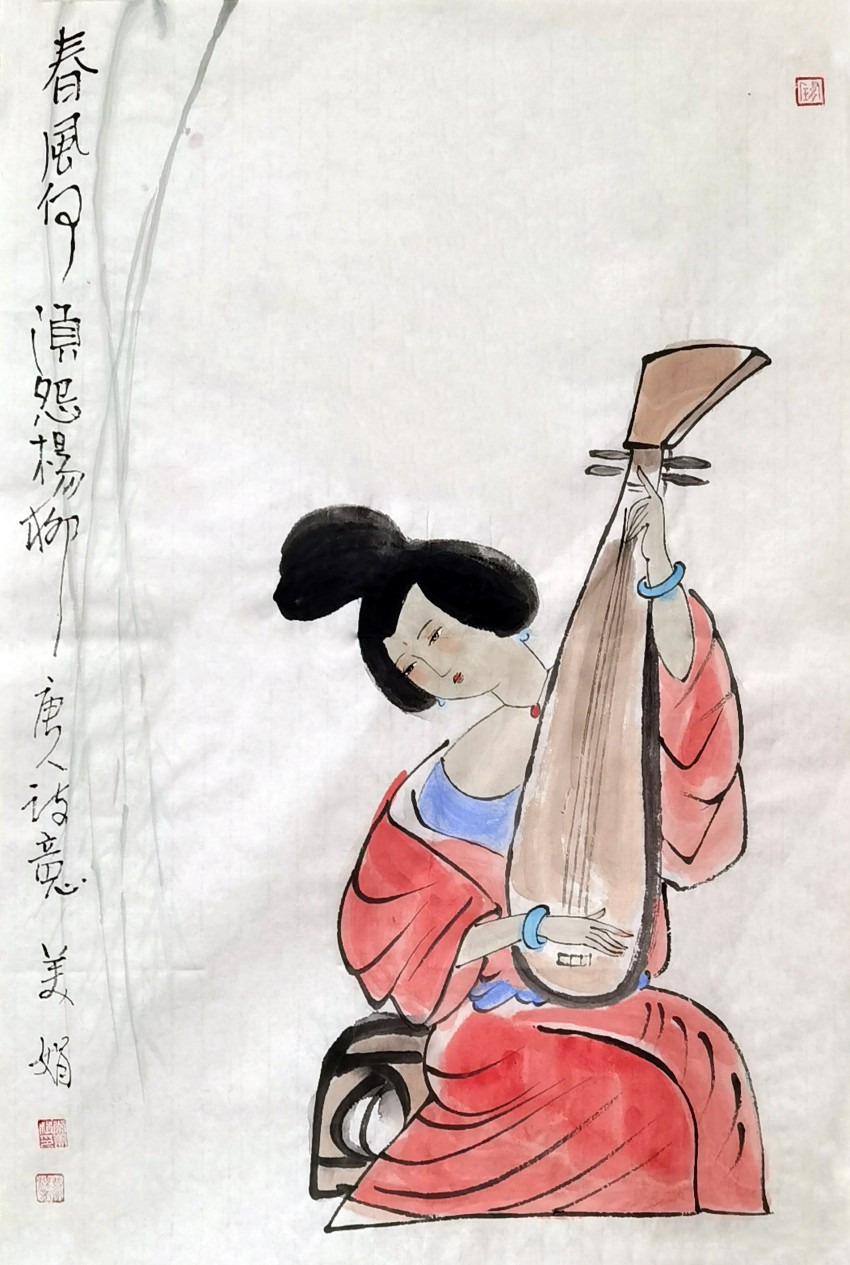 春風何湏怨楊柳 唐人诗意 美娟